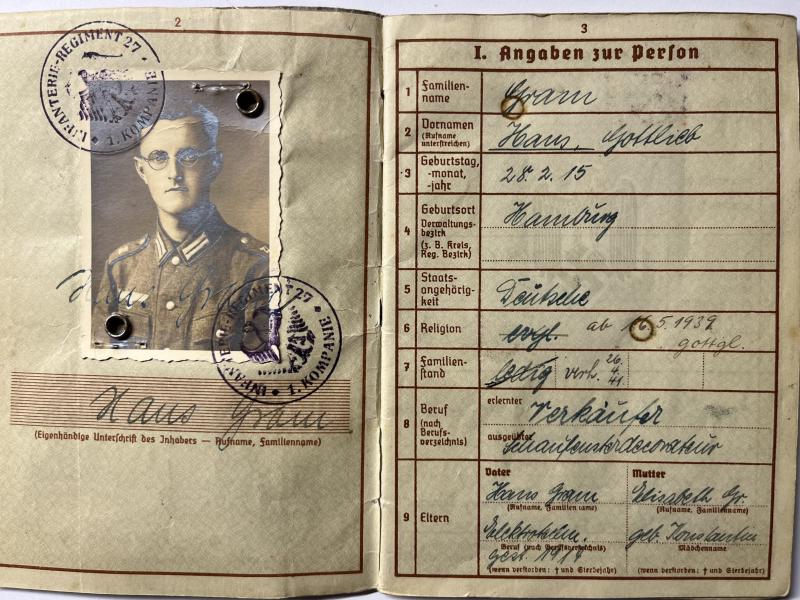 2
INFANTERIE-REGIMENT 27
1. KOMPANIE
Hans Gram
INFANTERIE-REGIMENT 27
1. KOMPANIE
Hans Gram
(Eigenhändige Unterschrift des Inhabers — Rufname, Familienname)
3
I. Angaben zur Person
1 Familien-
name
Gram
2 Vornamen
(Rufname
unterstreichen)
Hans, Gottlieb
3 Geburtstag,
-monat,
-jahr
28. 2. 15
4 Geburtsort
Verwaltungs-
bezirk
(z. B. Kreis,
Reg. Bezirk)
Hamburg
5 Staats-
angehörig-
keit
Deutsche
6 Religion
evgl. ab 16.5.1939
gottgl.
7 Familien-
stand
ledig verh. 26.
4.
41.
8 Beruf
(nach
Berufs-
verzeichnis)
erlernter
Verkäufer
ausgeübter
Schaufensterdecorateur
9 Eltern
Vater
Hans Gram
(Rufname, Familienname)
Elektrotechn.
Beruf (nach Berufsverzeichnis)
gest. 1917
(wenn verstorben: † und Sterbejahr)
Mutter
Elisabeth Gr.
(Rufname, Familienname)
geb. Konstantin
Mädchenname
(wenn verstorben: † und Sterbejahr)